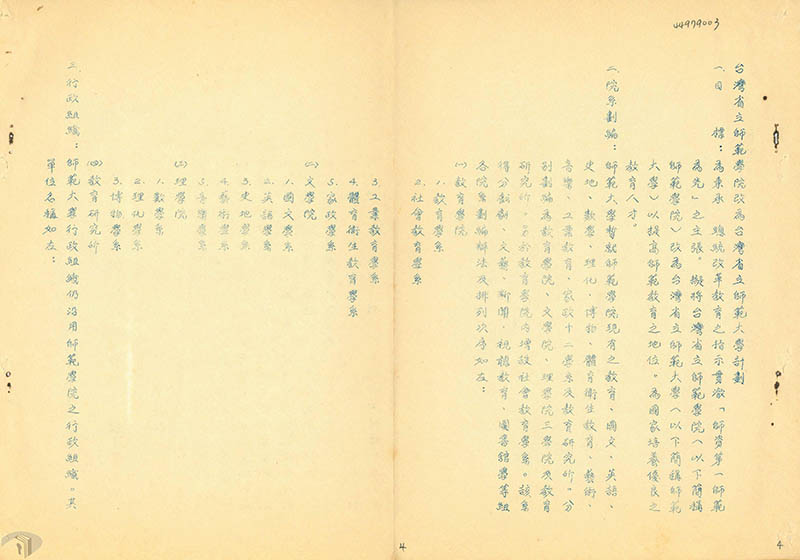 44979003
台灣省立師範學院改為台灣省立師範大學計劃
一、目　標：為秉承　總統改革教育之指示貫澈「師資第一師範
為先」之主張。擬將台灣省立師範學院（以下簡稱
師範學院）改為台灣省立師範大學（以下簡稱師範
大學）以提高師範教育之地位。為國家培養優良之
教育人才。
二、院系劃編：師範大學暫就師範學院現有之教育、國文、英語、
史地、數學、理化、博物、體育衛生教育、藝術、
音樂、工業教育、家政十二學系及教育研究所。分
別劃編為教育學院、文學院、理學院三學院及教育
研究所。另於教育學院內增設社會教育學系。該系
得分戲劇、文藝、新聞、視聽教育、圖書館學等組
各院系劃編辦法及排列次序如左：
㈠教育學院
1.教育學系
2.社會教育學系
3.工業教育學系
4.體育衛生教育學系
5.家政學系
㈡文學院
1.國文學系
2.英語學系
3.史地學系
4.藝術學系
5.音樂學系
㈢理學院
1.數學系
2.理化學系
3.博物學系
㈣教育研究所
三、行政組織：師範大學行政組織仍沿用師範學院之行政組織。其
單位名稱如左：
4
4